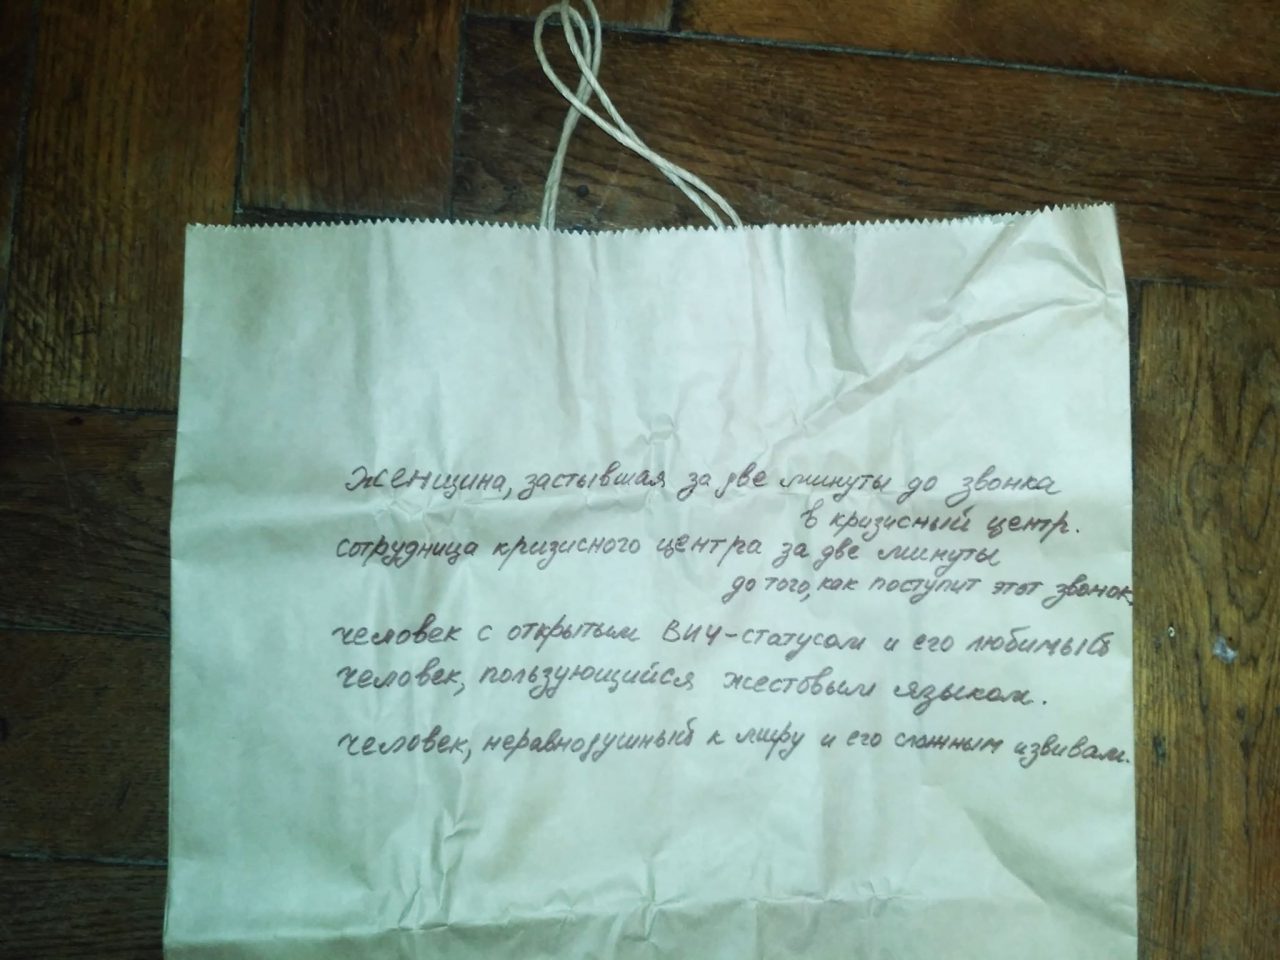 женщина, застывшая за две минуты до звонка
в кризисный центр.
сотрудница кризисного центра за две минуты
до того, как поступит этот звонок.
человек с открытым ВИЧ-статусом и его любимый
человек, пользующийся жестовым языком.
человек, неравнодушный к миру и его сложным извивам.